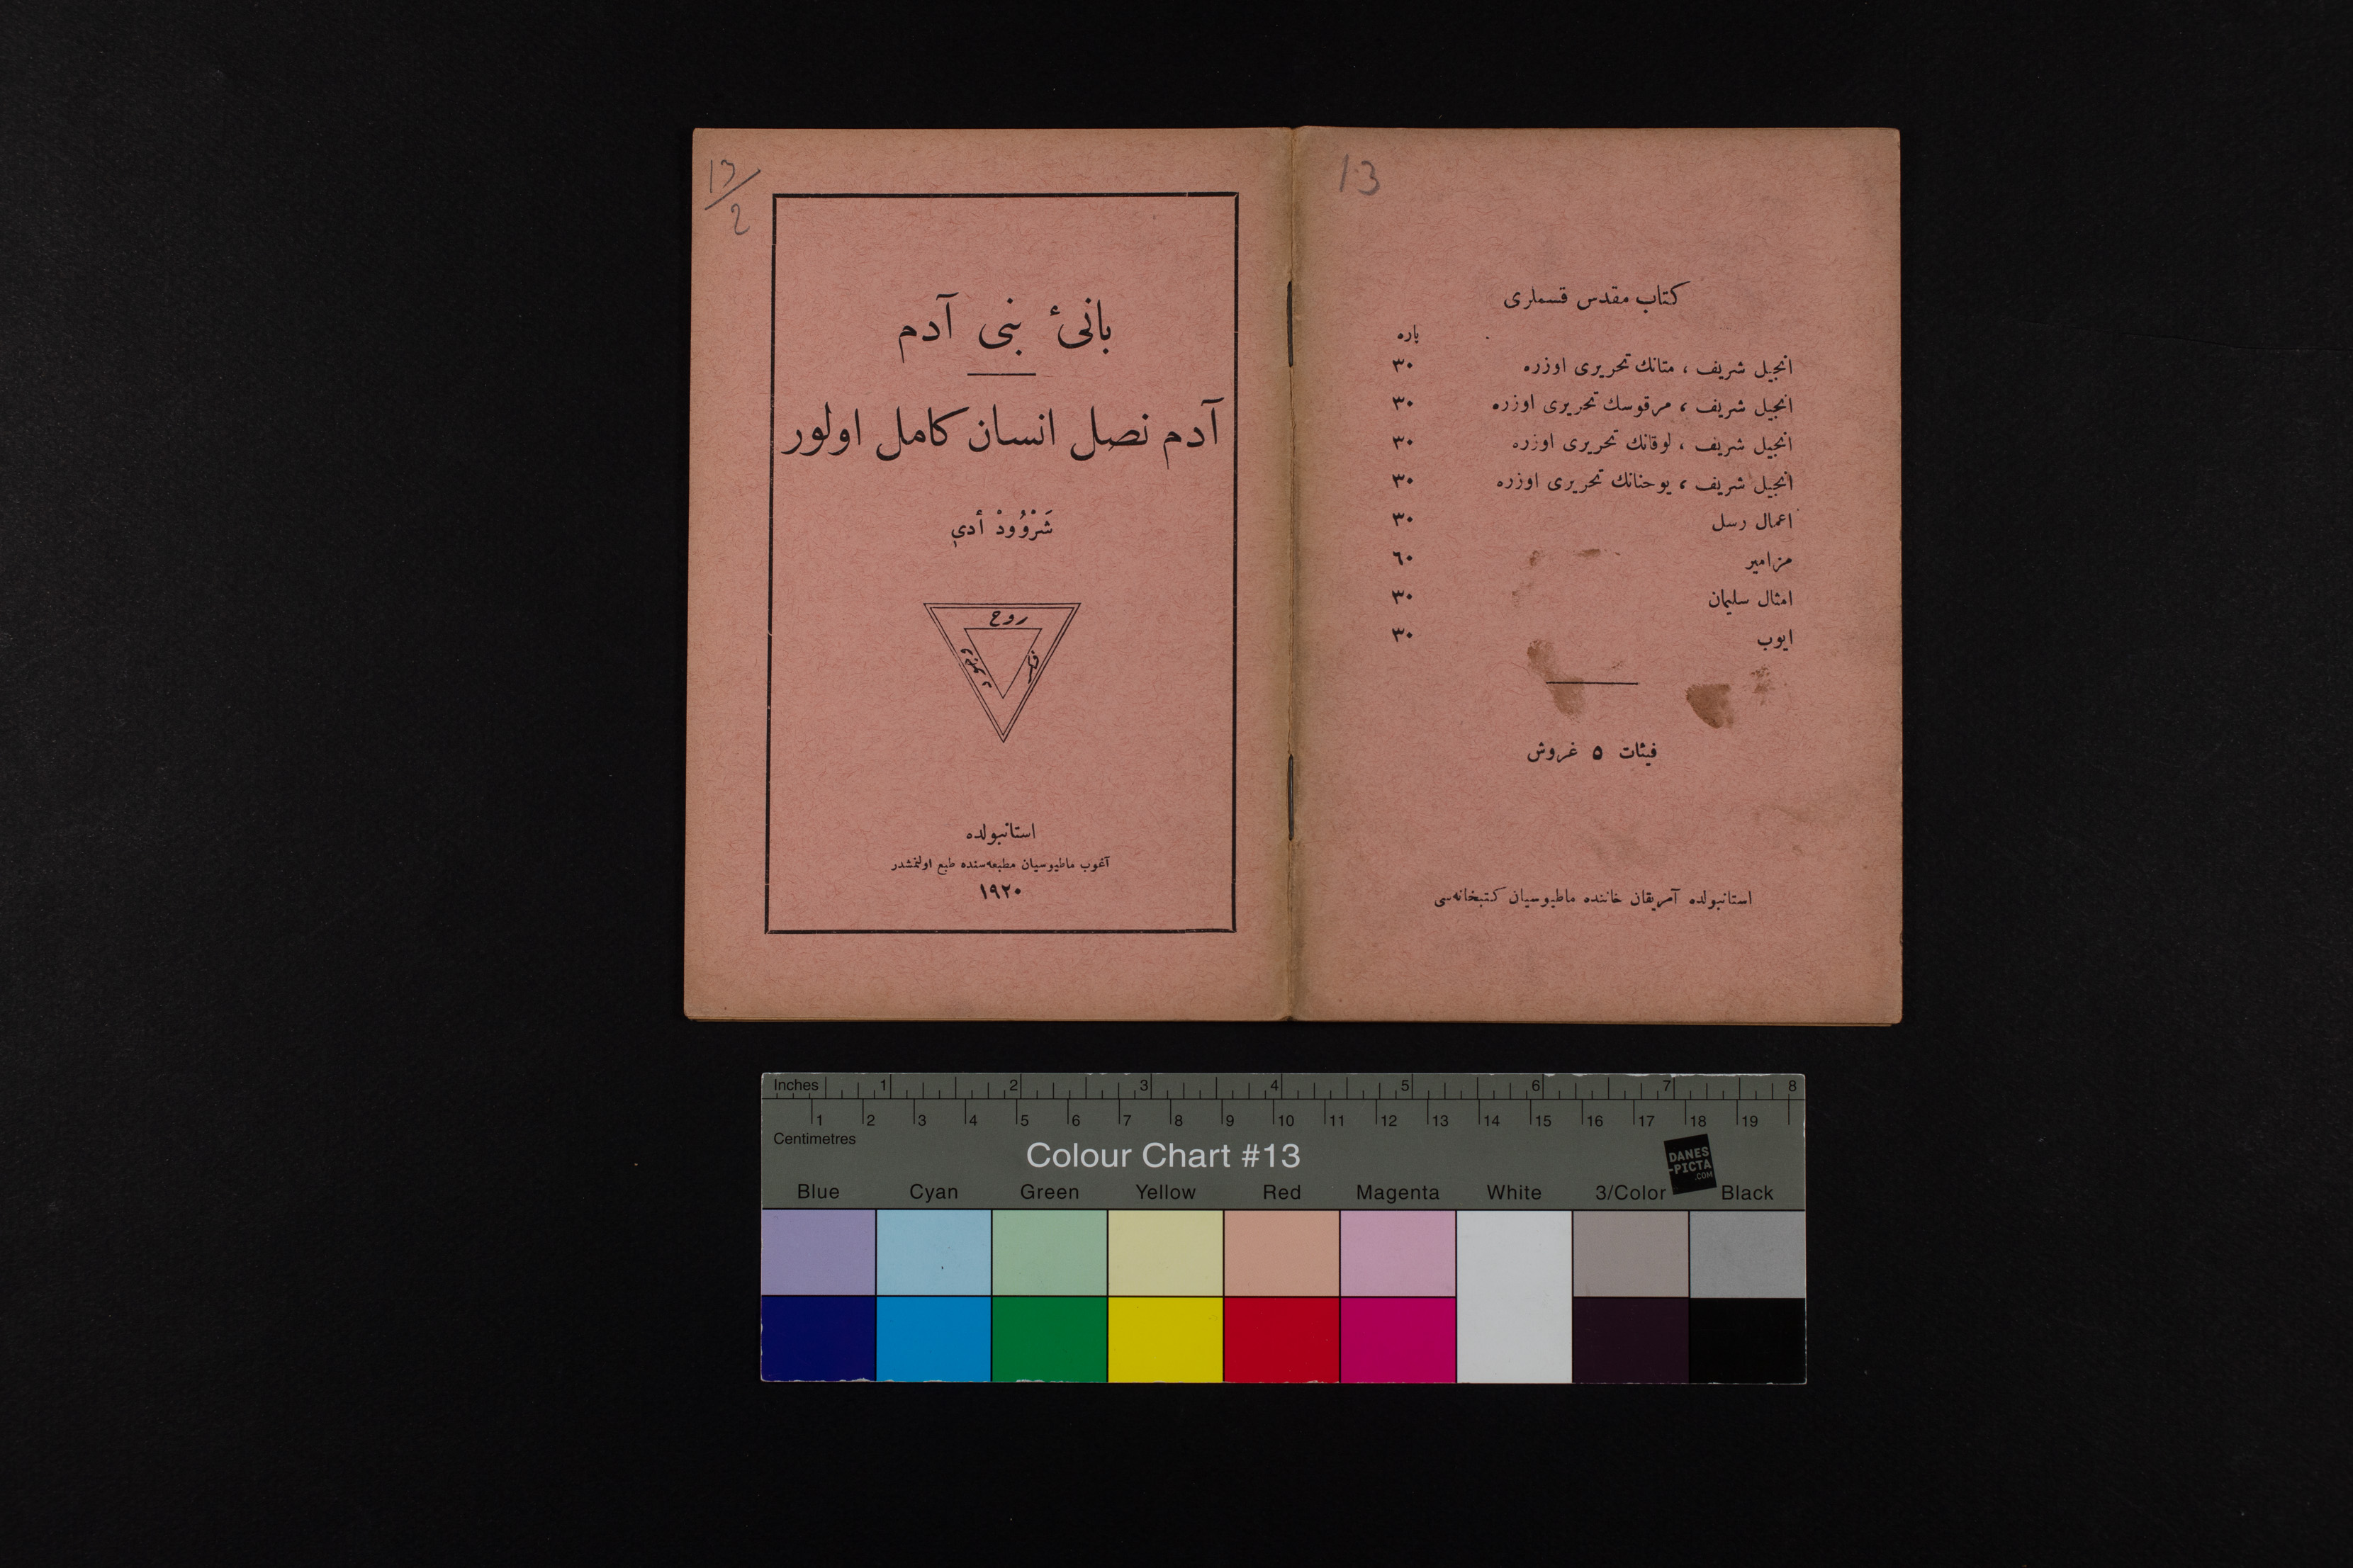 13/2
بانئ بنی آدم
آدم نصل انسان كامل اولور
شَرْوُودْ أدي
روح
فكر
وجود
استانبولده
آغوب ماطيوسيان مطبعه‌سنده طبع اولنمشدر
١٩٢٠
13
كتاب مقدس قسملری
پاره
انجيل شريف ، متانك تحريری اوزره ٣٠
انجيل شريف ، مرقوسك تحريری اوزره ٣٠
انجيل شريف ، لوقانك تحريری اوزره ٣٠
انجيل شريف ، يوحنانك تحريری اوزره ٣٠
اعمال رسل ٣٠
مزامير ٦٠
امثال سليمان ٣٠
ايوب ٣٠
فيئات ٥ غروش
استانبولده آمريقان خاننده ماطيوسيان كتبخانه‌سی
Inches 1 2 3 4 5 6 7 8
1 2 3 4 5 6 7 8 9 10 11 12 13 14 15 16 17 18 19
Centimetres
Colour Chart #13
DANES
-PICTA
.COM
Blue Cyan Green Yellow Red Magenta White 3/Color Black